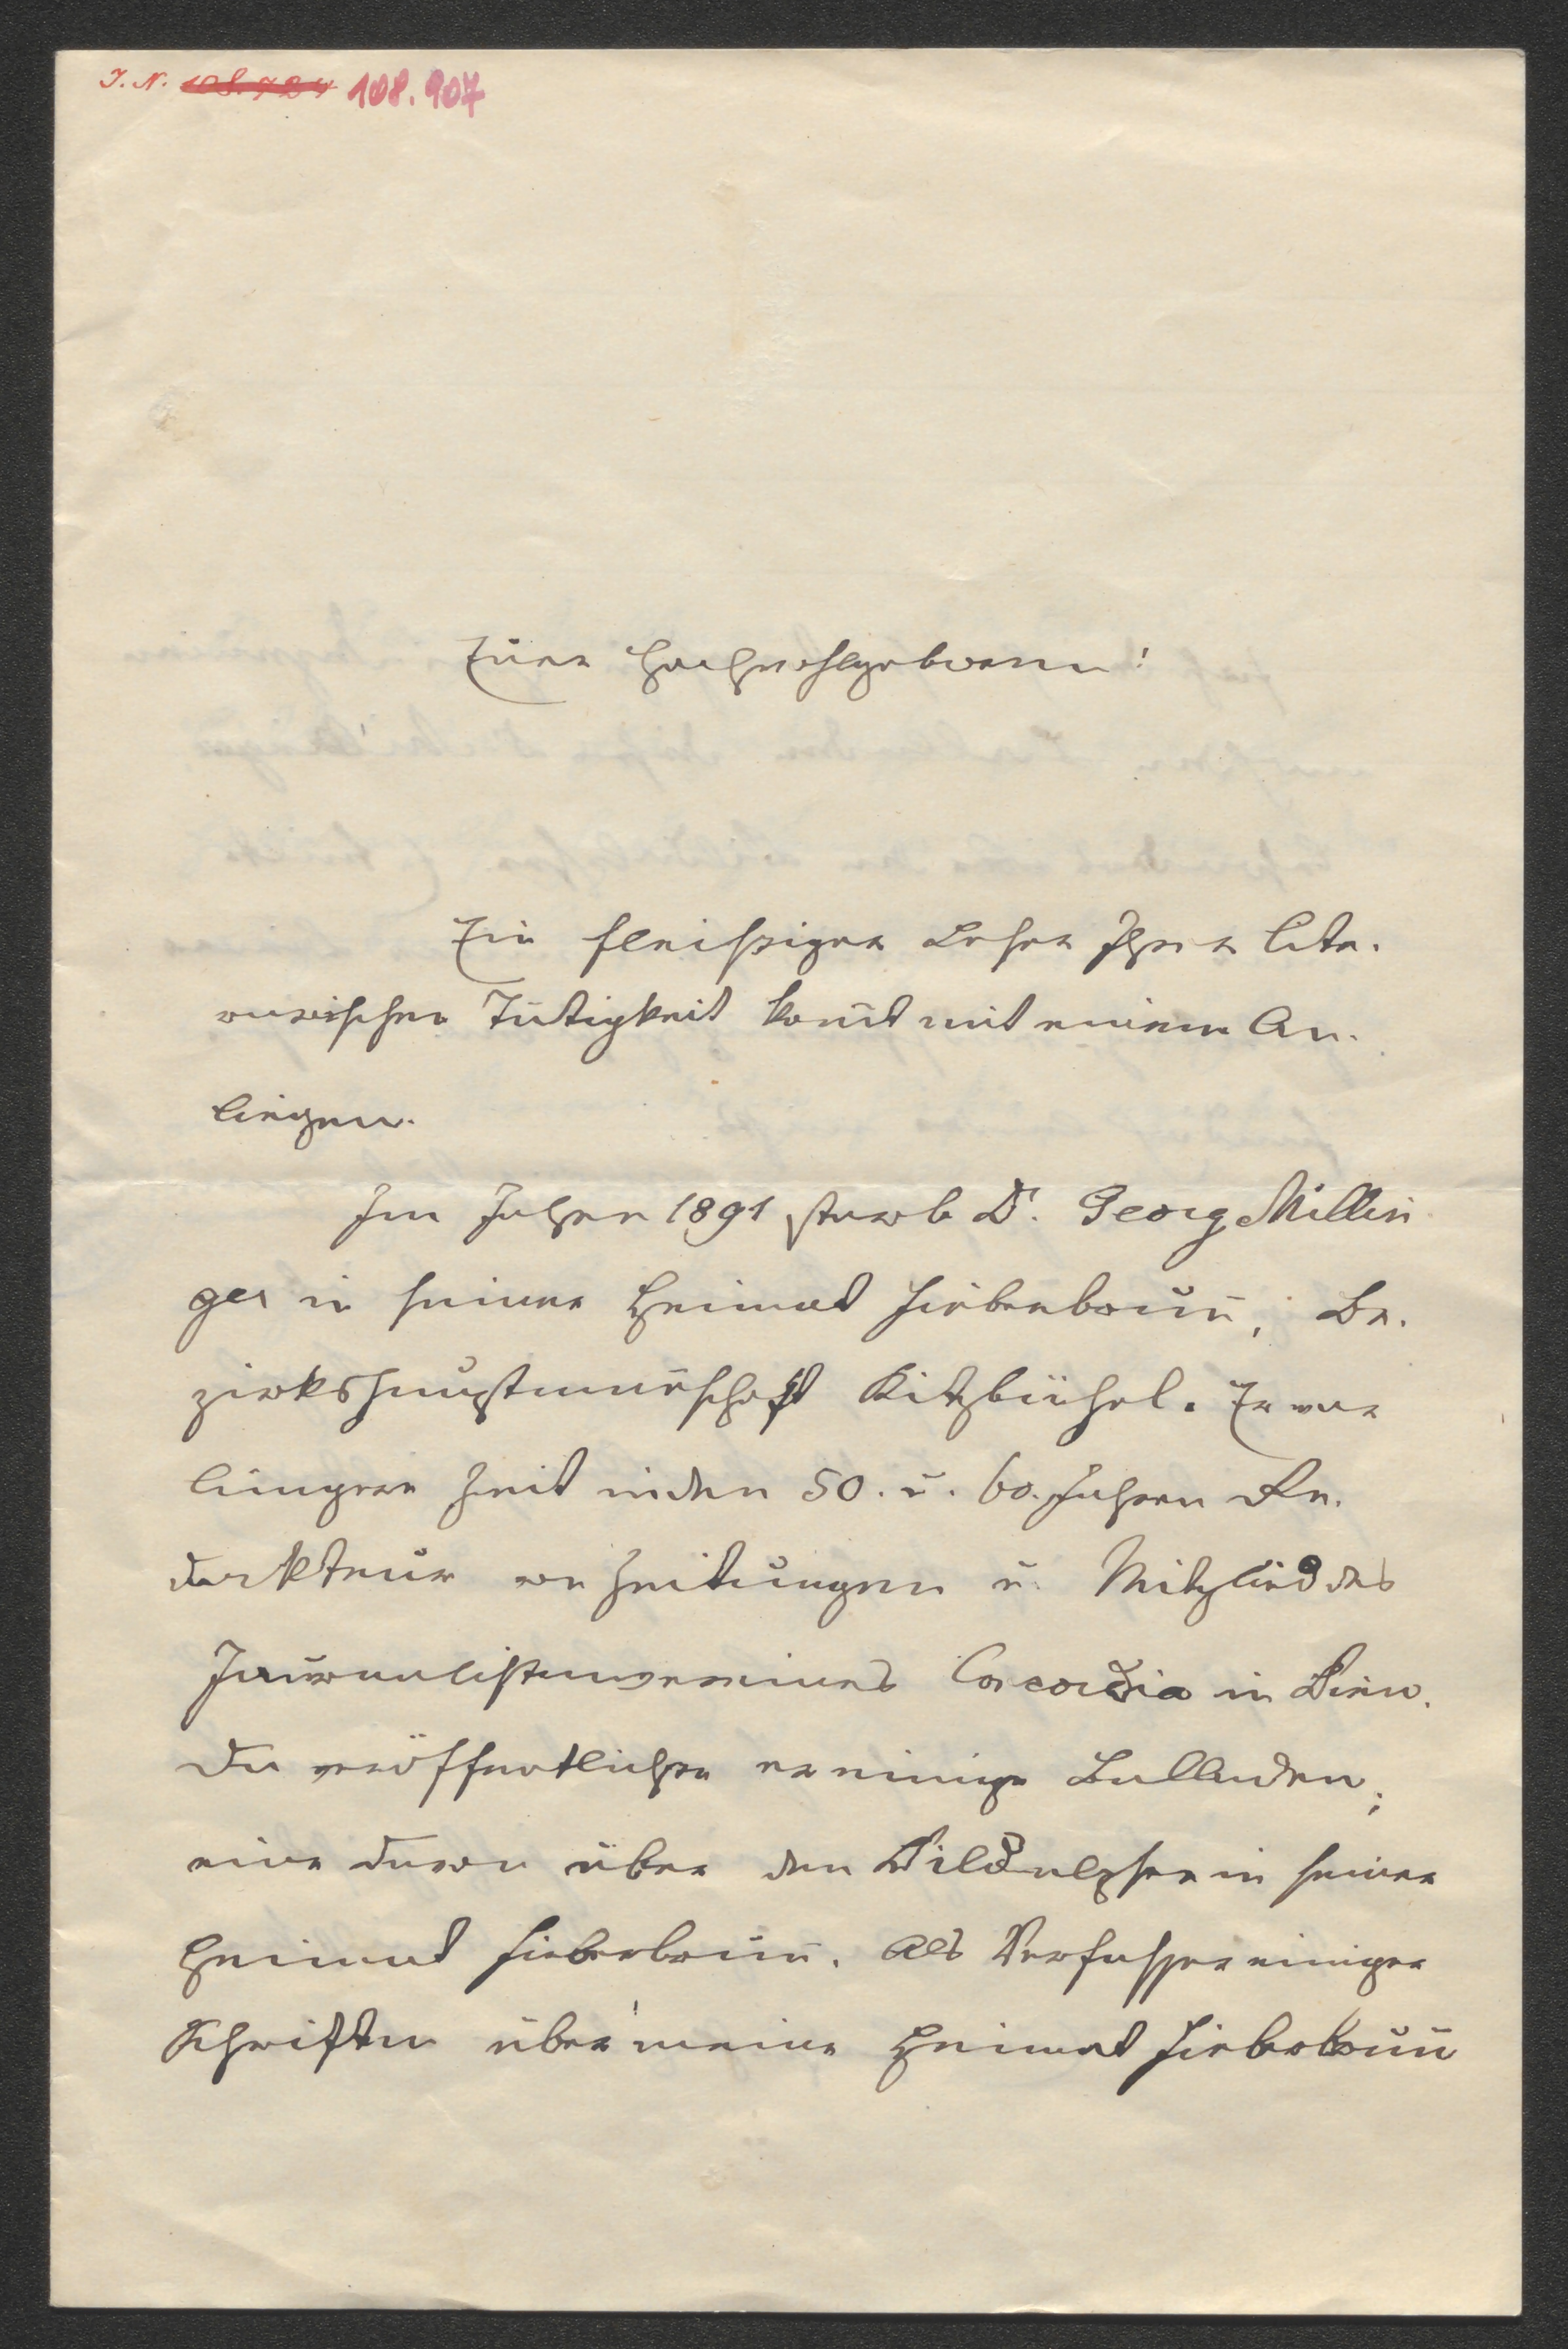 I. N. 108.724 108.907
Euer Hochwohlgeboren!
Ein fleißiger Leser Ihrer lite-
rarischen Tätigkeit kom̄t mit einem An-
liegen.
Im Jahre 1891 starb Dr. Georg Millin
ger in seiner Heimat Fieberbrun̄, Be-
zirkshauptman̄schaft Kitzbühel. Er war
längere Zeit in den 50. u. 60. Jahren Re-
dakteur von Zeitungen u. Mitglied des
Journalistenvereines Concordia in Wien.
Da veröffentlichte er einige Balladen,
eine davon über den Wildalpsee in seiner
Heimat Fieberbrun̄. Als Verfasser einiger
Schriften über meine Heimat Fieberbrun̄